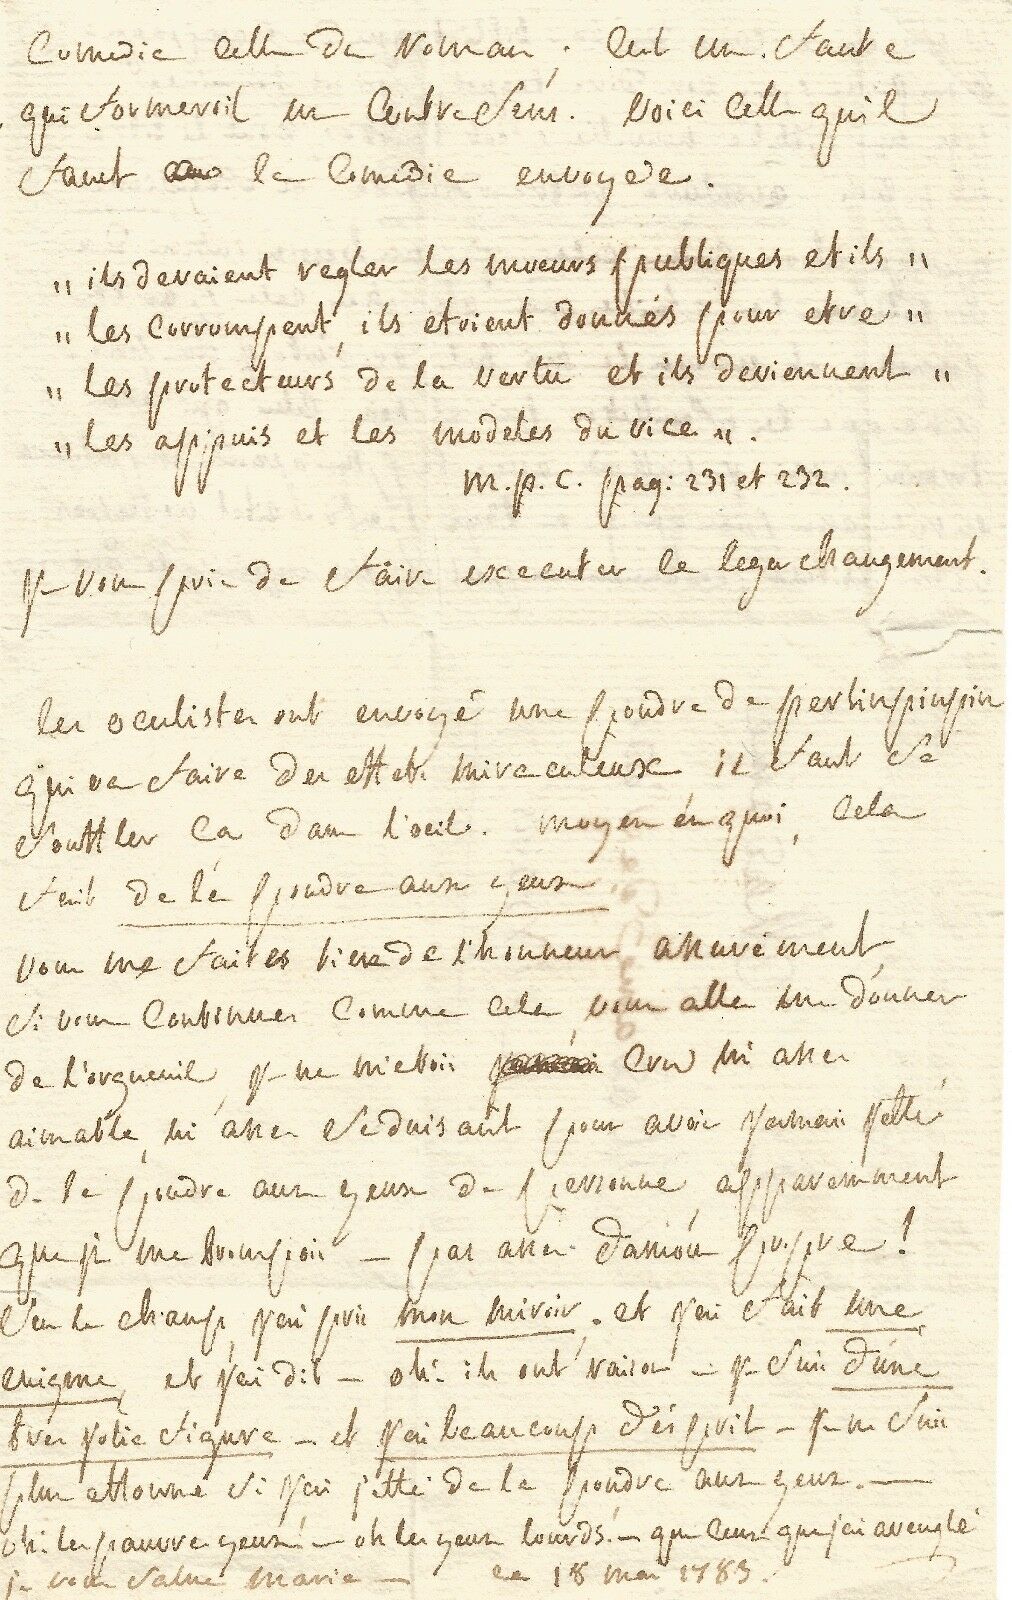 Comedie celle du Roman, c'est une faute
qui formeroit un Contresens. voici celle qu'il
faut a la Comedie envoyée.
" ils devaient regler les moeurs publiques et ils "
" les corrompent, ils etoient donnés pour etre "
" les protecteurs de la vertu et ils deviennent "
" les appuis et les modeles du vice ".
M. p. C. pag: 231 et 232.
je vous prie de faire executer le leger changement.
les oculistes ont envoyé une poudre de perlinpinpin
qui va faire des effets miraculeux il faut se
souffler ca dans l'oeil. moyen en quoi, cela
sent de la poudre aux yeux
vous me faites bien de l'honneur assurément,
si vous continuez comme cela, vous alle me donner
de l'orgueuil, je ne m'etois cru ni assez
aimable, ni assez seduisant pour avoir jamais jetté
de la poudre aux yeux de personne, apparemment
que je me trompois — pas assez d'amour propre!
sur le champ, j'ai pris mon miroir, et j'ai fait une
enigme, et j'ai dit — oh! ils ont raison — je suis d'une
tres jolie figure — et j'ai beaucoup d'ésprit — je ne suis
plus ettonné si j'ai jetté de la poudre aux yeux. —
oh! les pauvre yeux! — oh les yeux lourds! — que ceux que j'ai aveuglé
je vous salue Marie — ce 18 mai 1783.